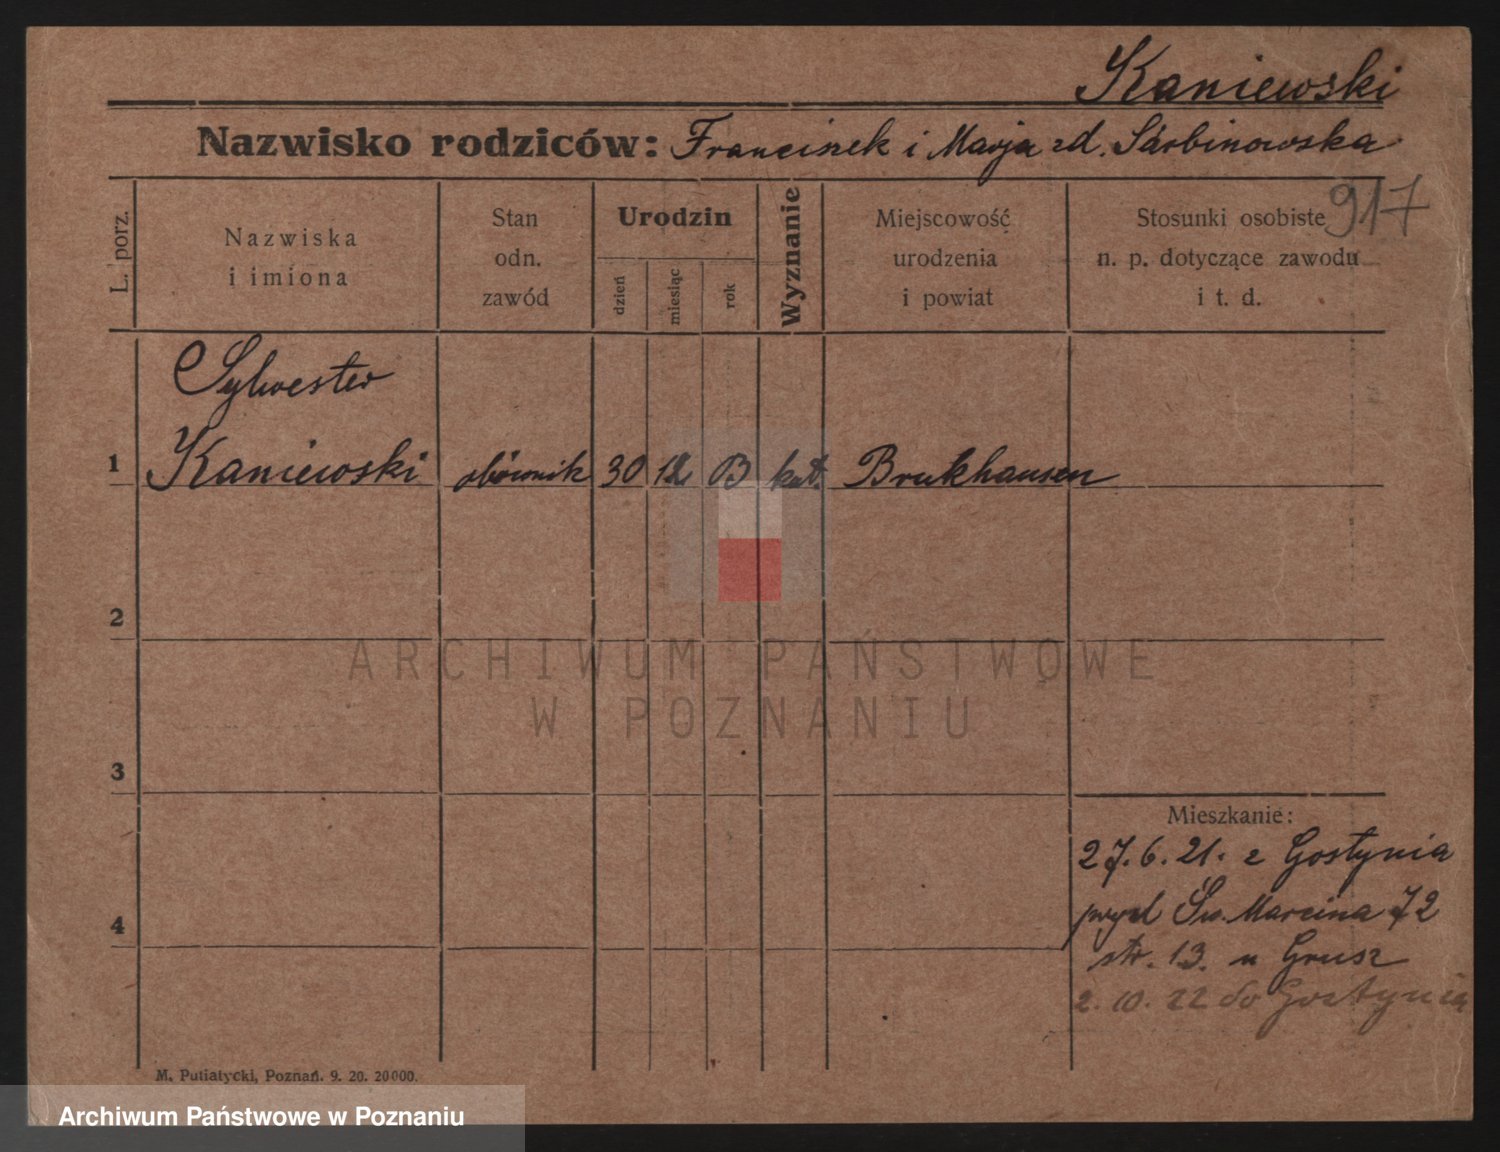 Kaniewski
Nazwisko rodziców: Franciszek i Marja zd. Sarbinowska
917
L. porz.
Nazwiska
i imiona
Stan
odn.
zawód
Urodzin
dzień
miesiąc
rok
Wyznanie
Miejscowość
urodzenia
i powiat
Stosunki osobiste
n. p. dotyczące zawodu
i t. d.
Sylwester
1 Kaniewski obównik 30 12 kat. Brukhausen
2
ARCHIWUM PAŃSTWOWE
W POZNANIU
3
Mieszkanie:
27.6.21. z Gostynia
4
Św. Marcina 72
str. 13. u Grusz
2. 10. 22 do Gostynia
M. Putiatycki, Poznań. 9. 20. 20000.
Archiwum Państwowe w Poznaniu